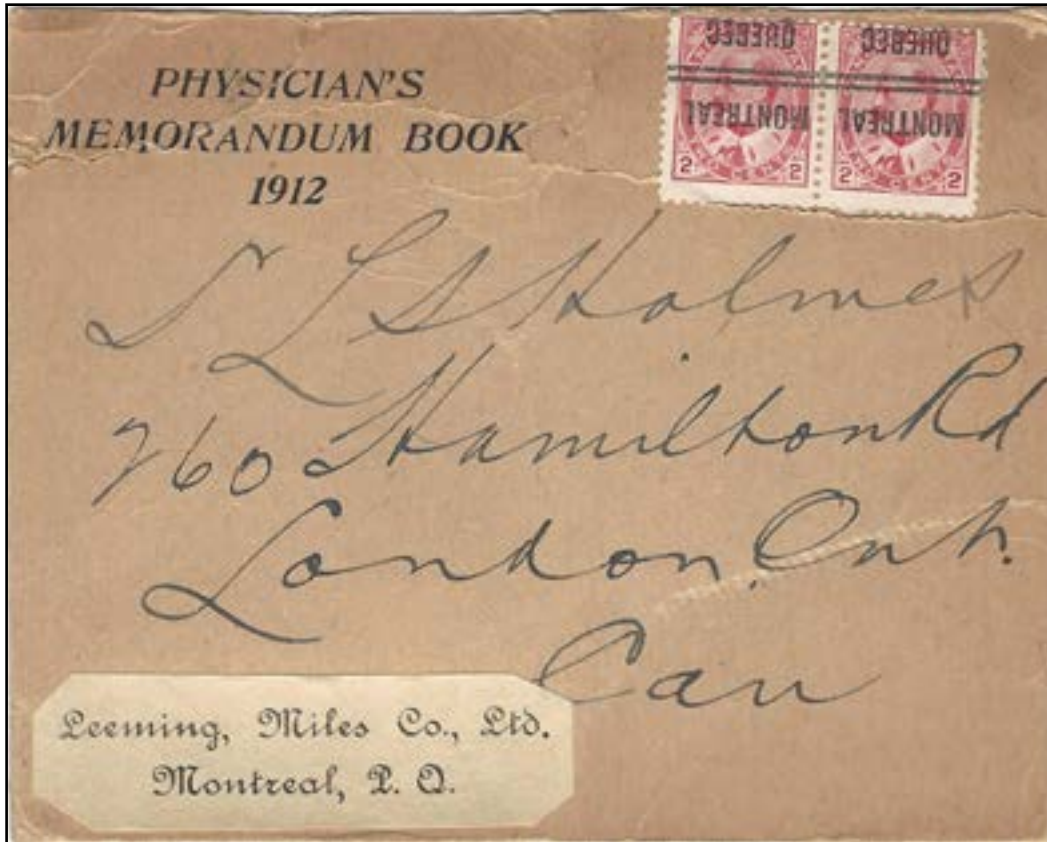 PHYSICIAN'S
MEMORANDUM BOOK
1912
QUEBEC QUEBEC
MONTREAL MONTREAL
2 2 2 2
L S Holmes
260 Hamilton Rd
London, Ont.
Can
Leeming, Miles Co., Ltd.
Montreal, P. Q.